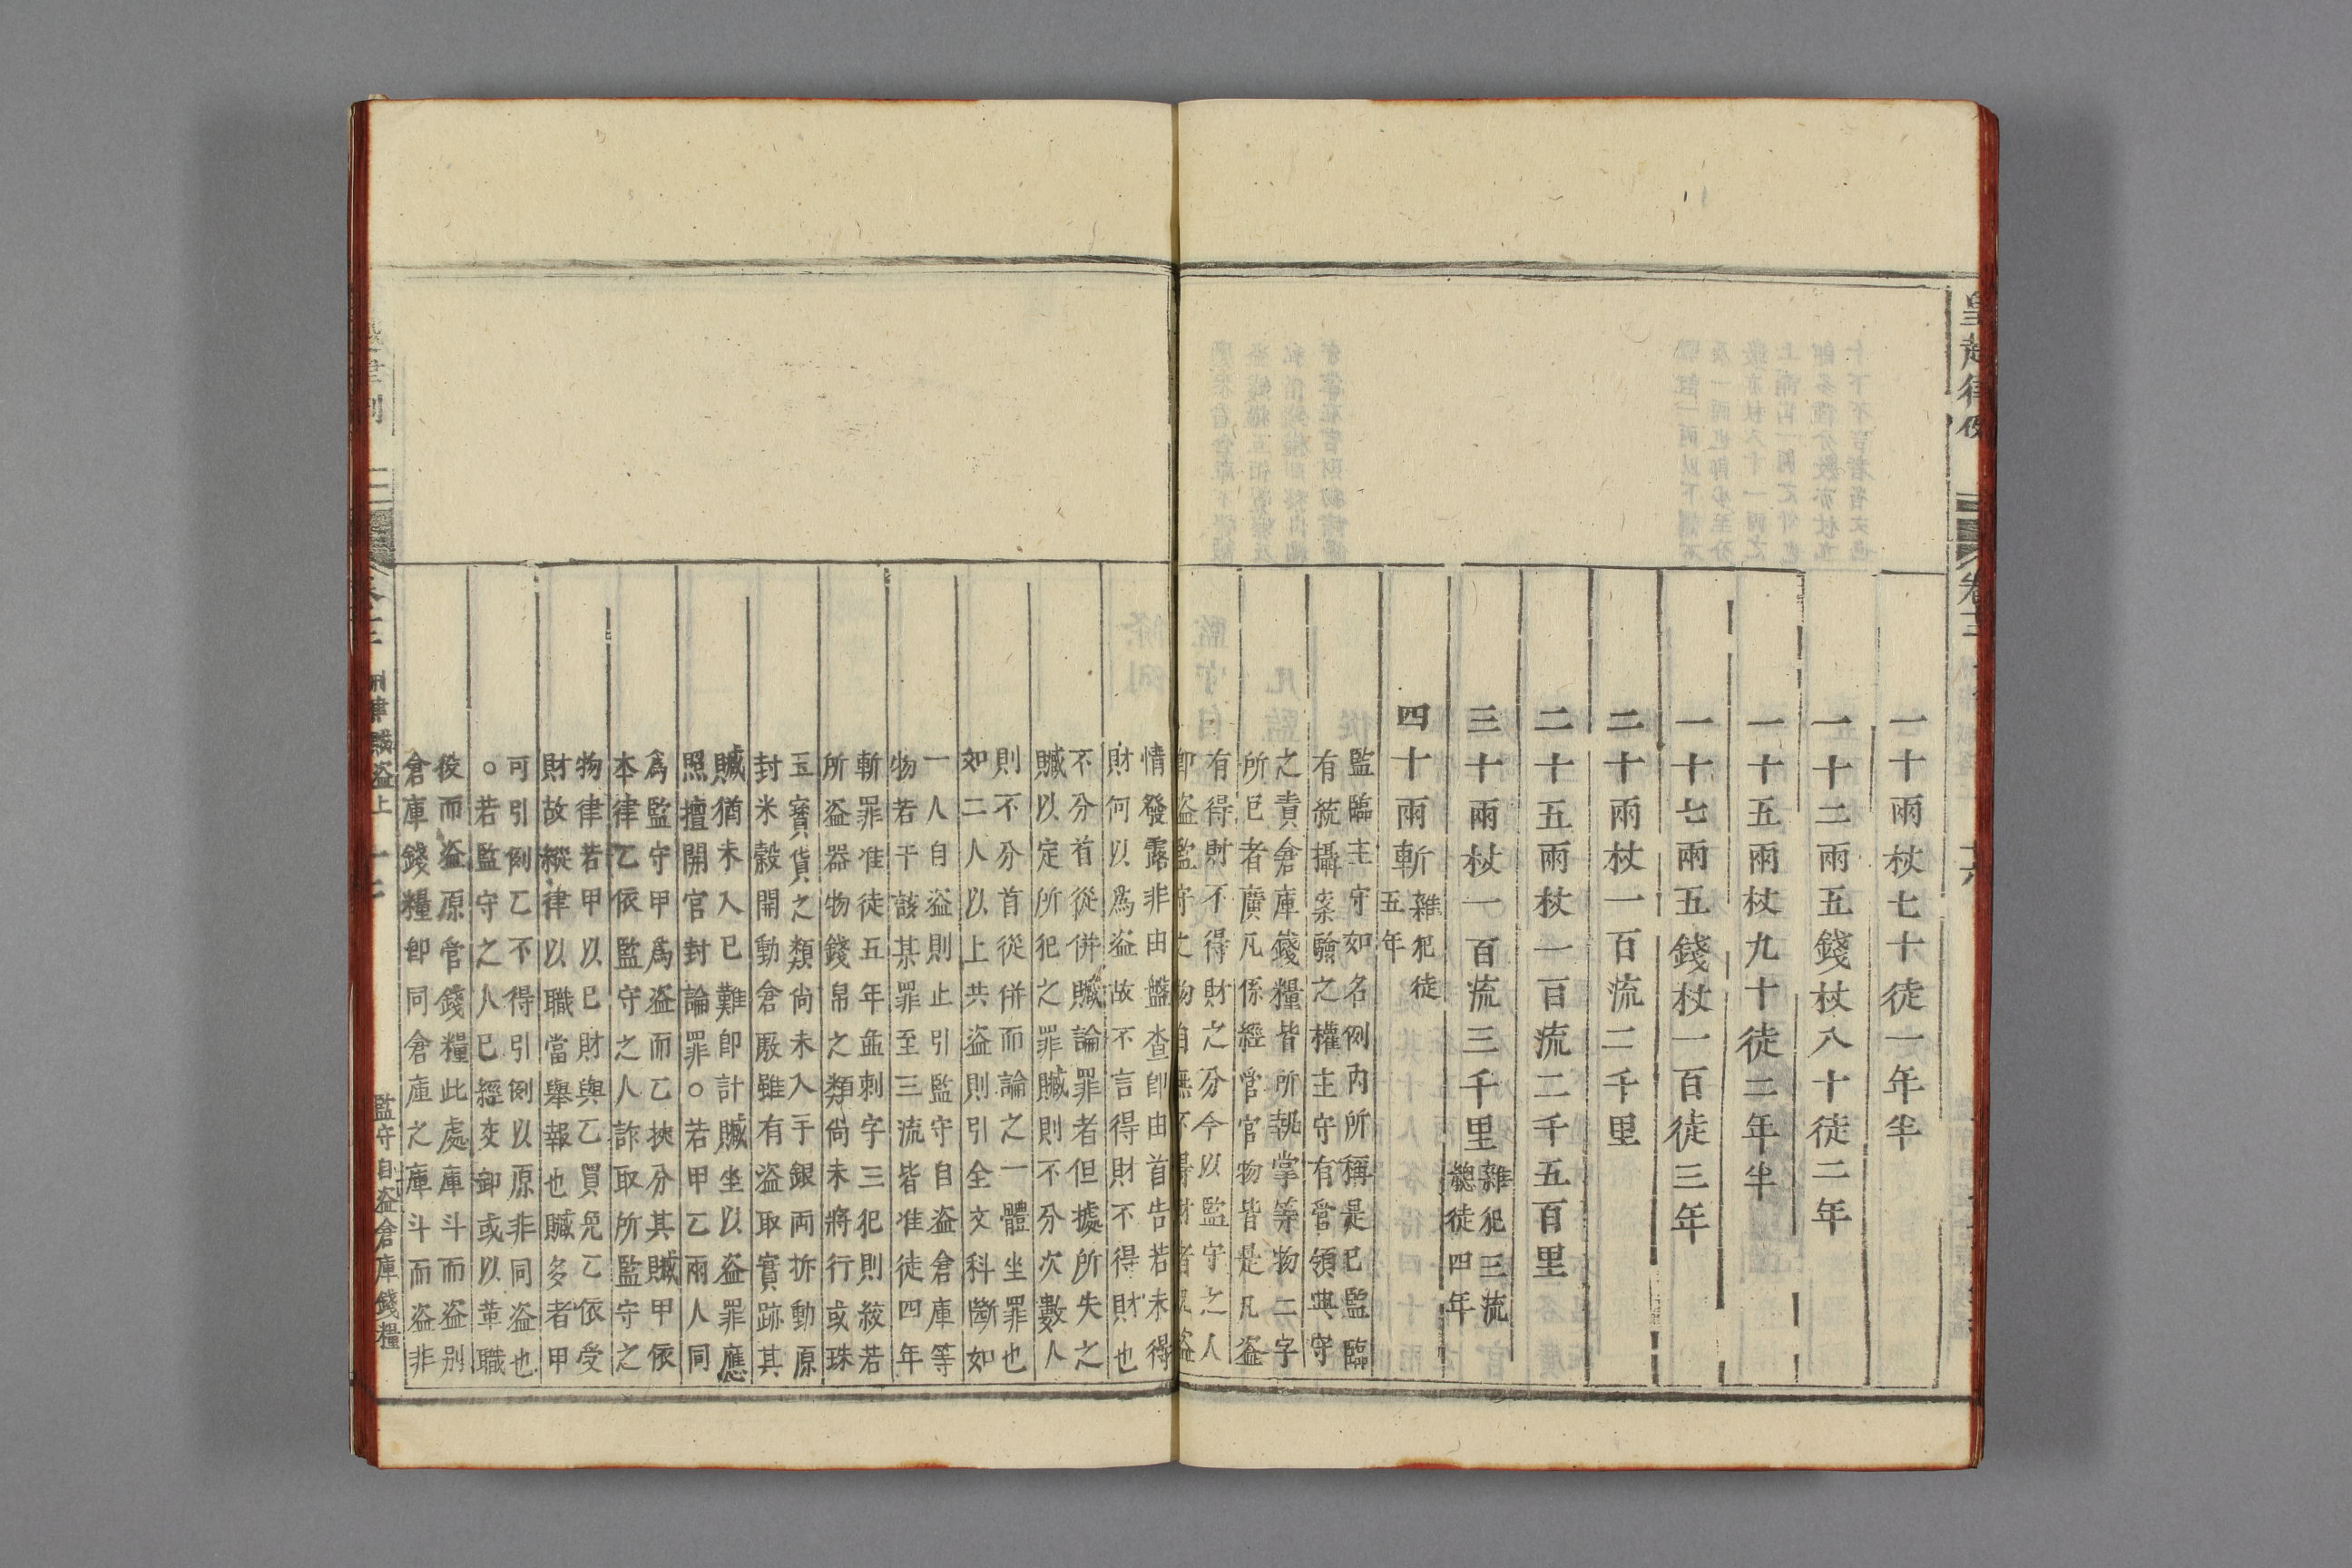 一十兩杖七十徒一年半
一十二兩五錢杖八十徒二年
一十五兩杖九十徒二年半
一十七兩五錢杖一百徒三年
二十兩杖一百流二千里
二十五兩杖一百流二千五百里
三十兩杖一百流三千里雜犯三流
總徒四年
四十兩斬雜犯徒
五年
監臨主守如名例內所稱是已監臨
有統攝案驗之權主守有管領典守
之責倉庫錢糧皆所執掌等物二字
所包者廣凡係經管官物皆是凡盜
有得財不得財之分今以監守之人
即盜監守之物自無不得財者況盜
情發露非由盤查即由首告若未得
財何以為盜故不言得財不得財也
不分首從併贓論罪者但據所失之
贓以定所犯之罪贓則不分次數人
則不分首從併而論之一體坐罪也
如二人以上共盜則引全文科斷如
一人自盜則止引監守自盜倉庫等
物若干該某罪至三流皆准徒四年
斬罪准徒五年並刺字三犯則絞若
所盜器物錢帛之類尚未將行或珠
玉寶貨之類尚未入手銀兩拆動原
封米穀開動倉厫雖有盜取實跡其
贓猶未入已難即計贓坐以盜罪應
照擅開官封論罪○若甲乙兩人同
為監守甲為盜而乙挾分其贓甲依
本律乙依監守之人詐取所監守之
物律若甲以已財與乙買免乙依受
財故縱律以職當舉報也贓多者甲
可引例乙不得引例以原非同盜也
○若監守之人已經交卸或以革職
後而盜原管錢糧此處庫斗而盜别
倉庫錢糧即同倉庫之庫斗而盜非
刑律賊盜上
監守自盜倉庫錢糧